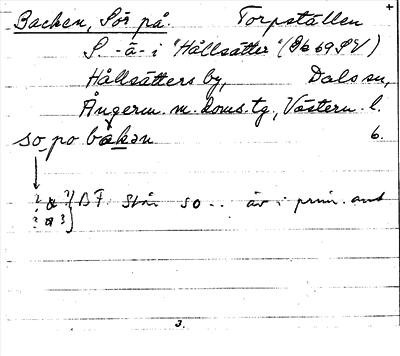 Backen, Sör på. Torpställen
S. -ä- i "Hållsätter" (9b 69 SV)
Hållsätters by, Dals sn,
Ångerm. m. doms. tg., Västern. l.
so po bakən 6.
? a ?) BF står so .. äv i prim. ant
? a 3)
3.